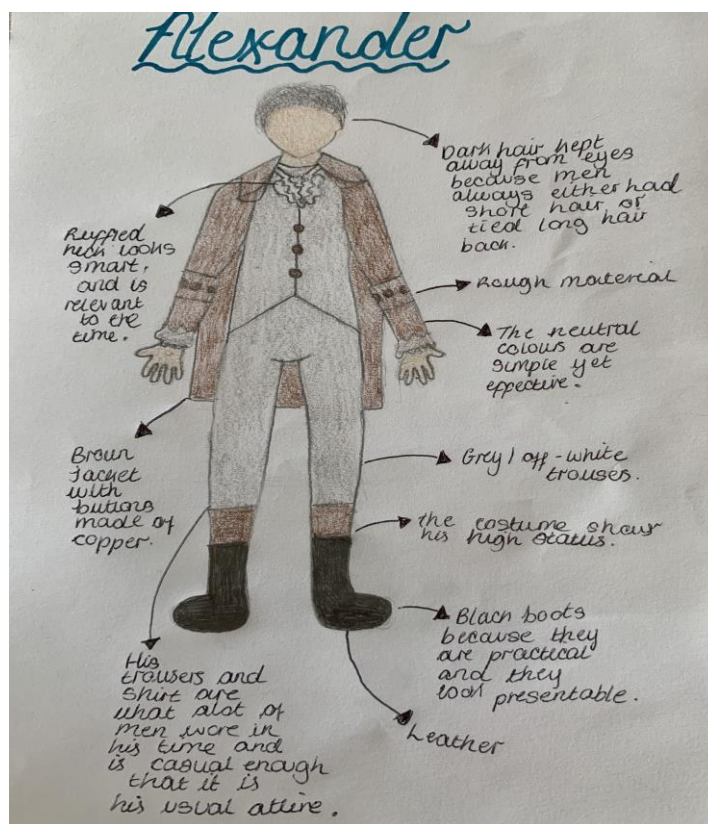 Alexander
Dark hair kept
away from eyes
because men
always either had
short hair, or
tied long hair
back.
Ruffled
neck looks
smart,
and is
relevant
to the
time.
Rough material
The neutral
colours are
simple yet
effective.
Brown
Jacket
with
buttons
made of
copper.
Grey / off-white
trouses.
the costume shows
his high status.
Black boots
because they
are practical
and they
look presentable.
Leather
His
trousers and
shirt are
what alot of
men wore in
his time and
is casual enough
that it is
his usual attire.